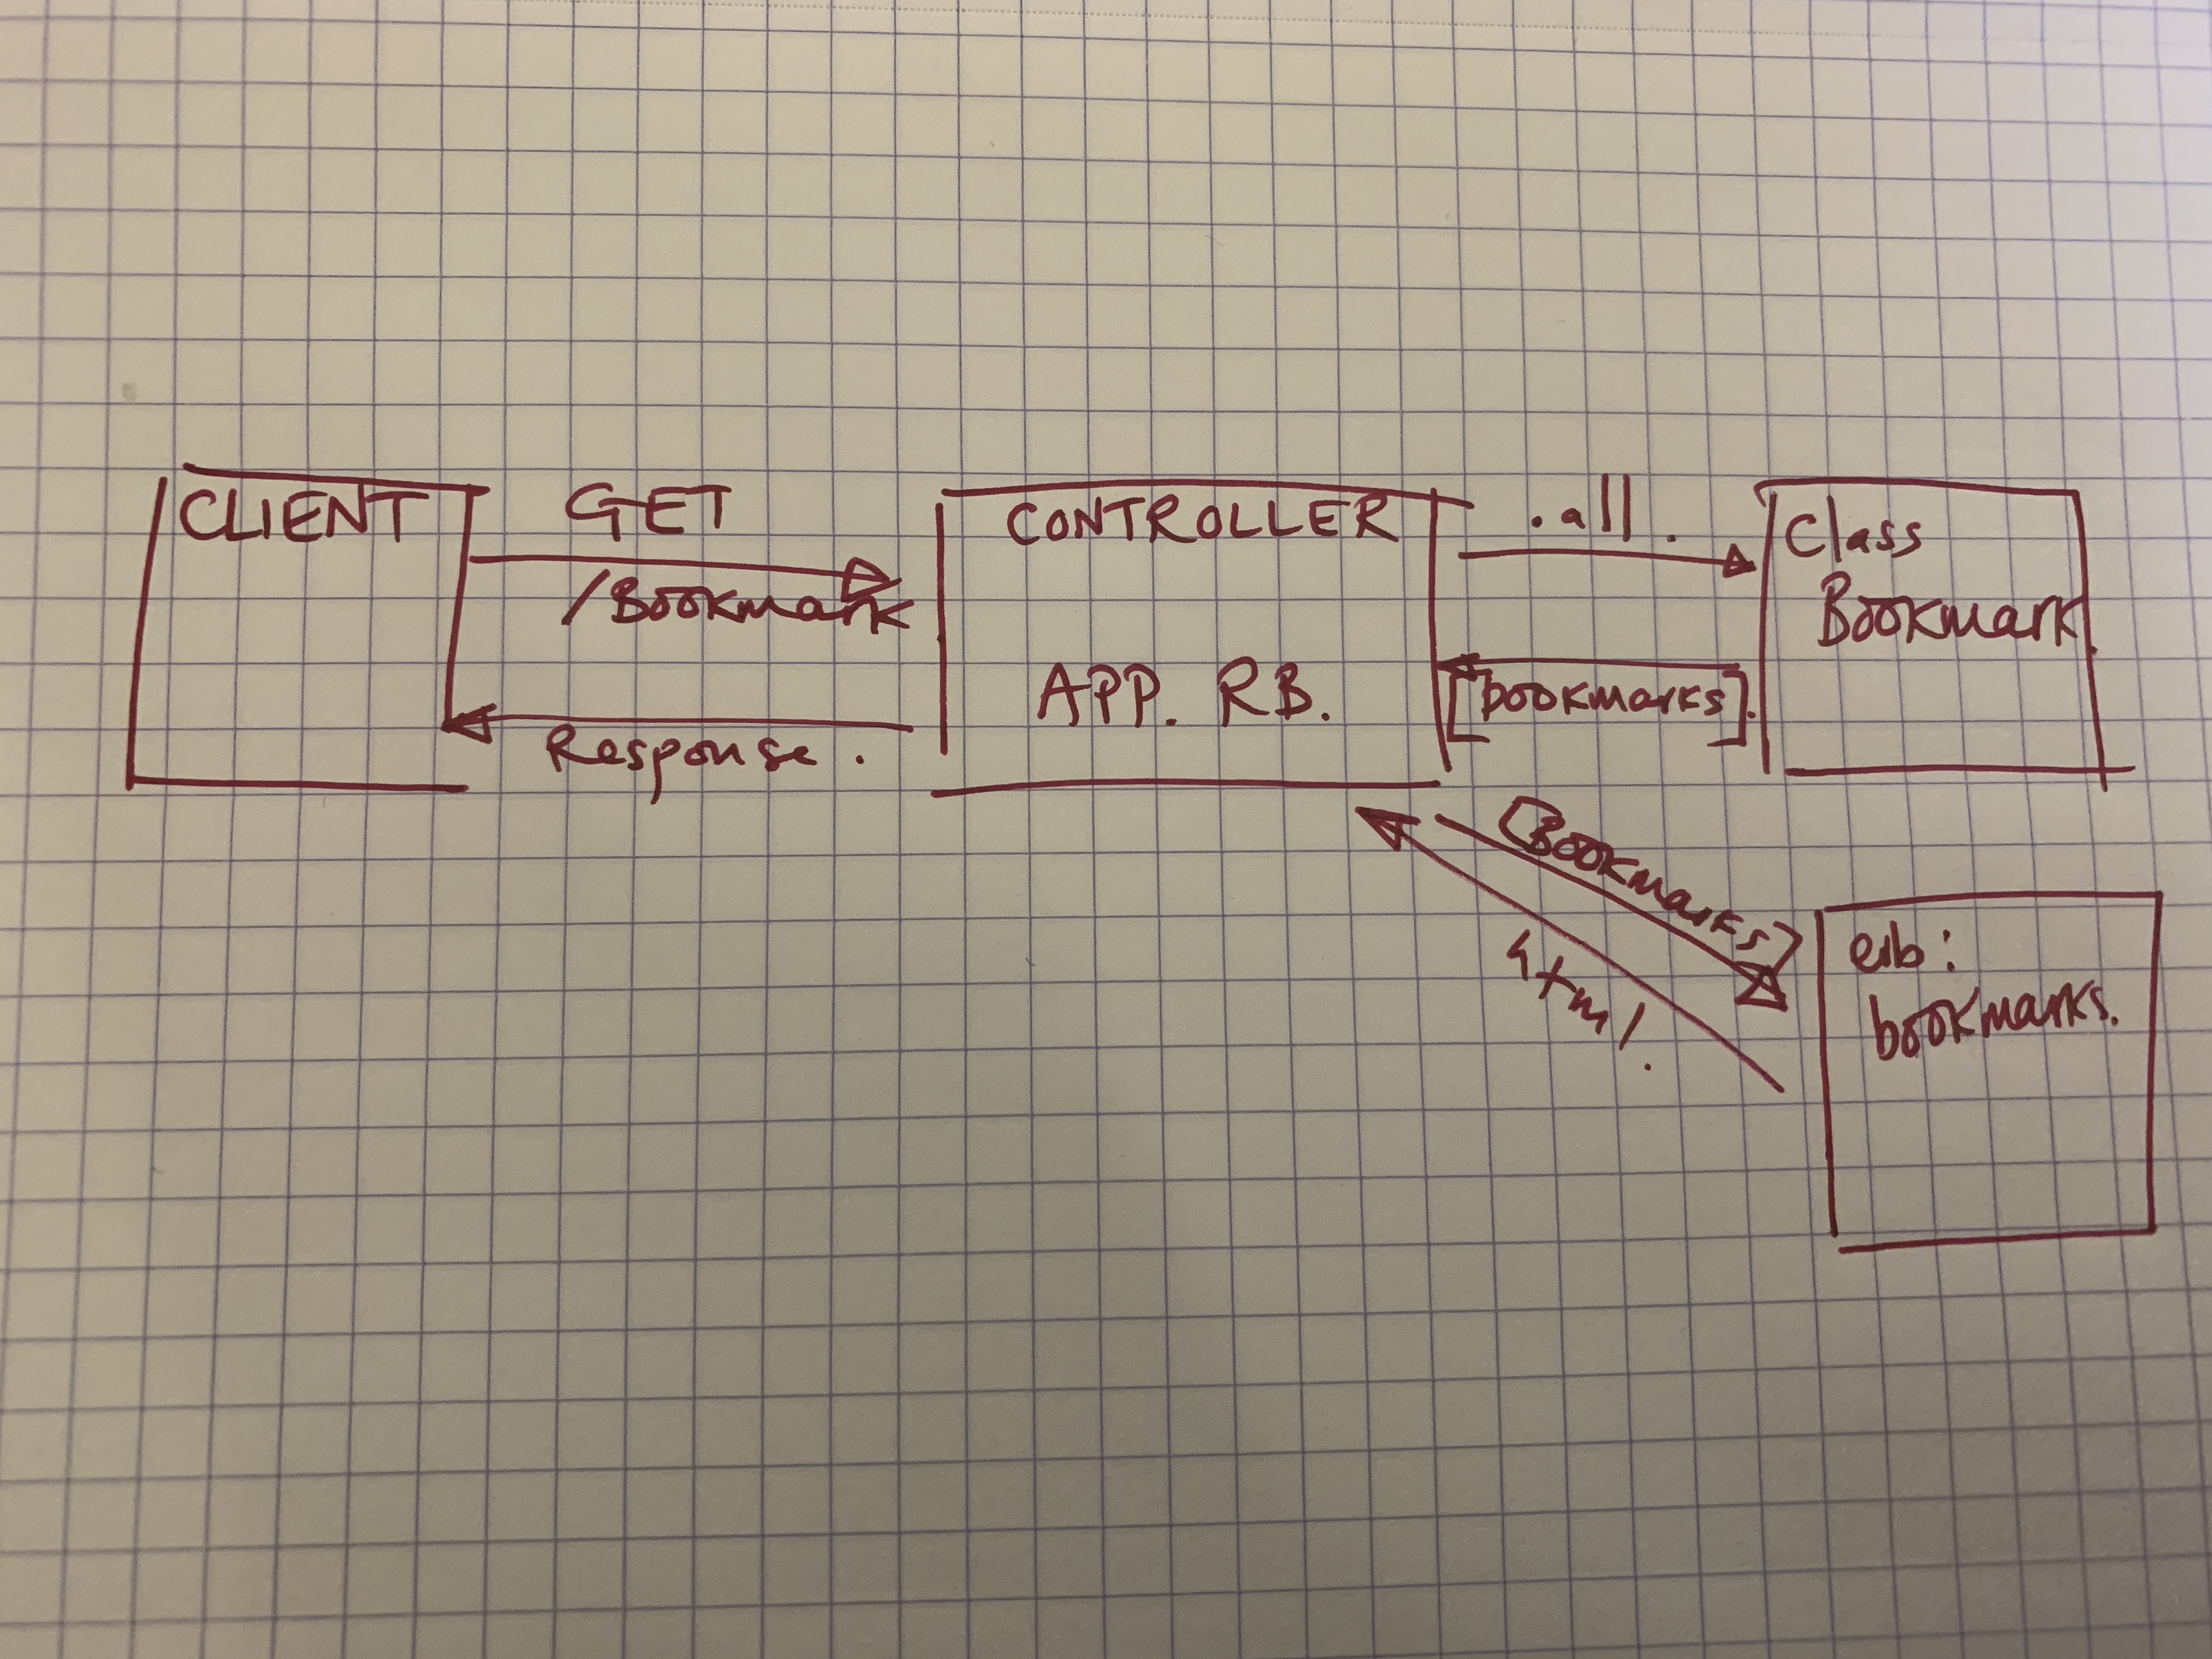 CLIENT
GET
/Bookmark
Response.
CONTROLLER
APP. RB.
.all.
[bookmarks].
Class
Bookmark.
[Bookmarks]
html.
erb:
bookmarks.